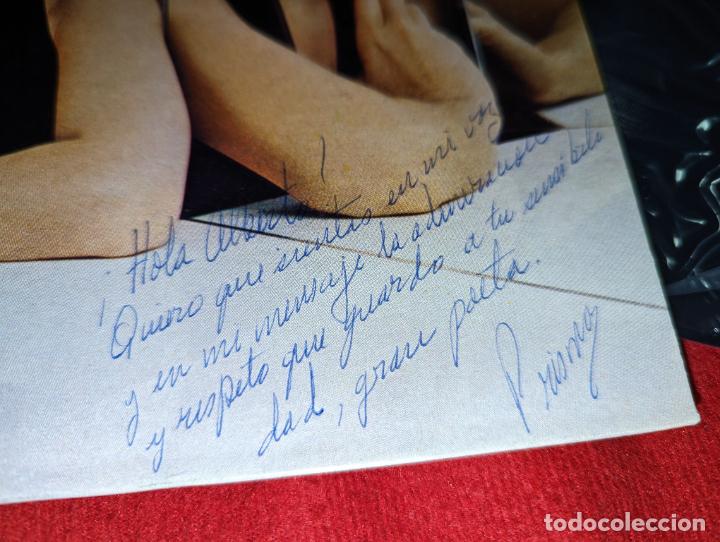 ¡Hola Alberto!
Quiero que sientas en mi voz
y en mi mensaje la admiración
y respeto que guardo a tu sensibili
dad, gran poeta.
todocoleccion